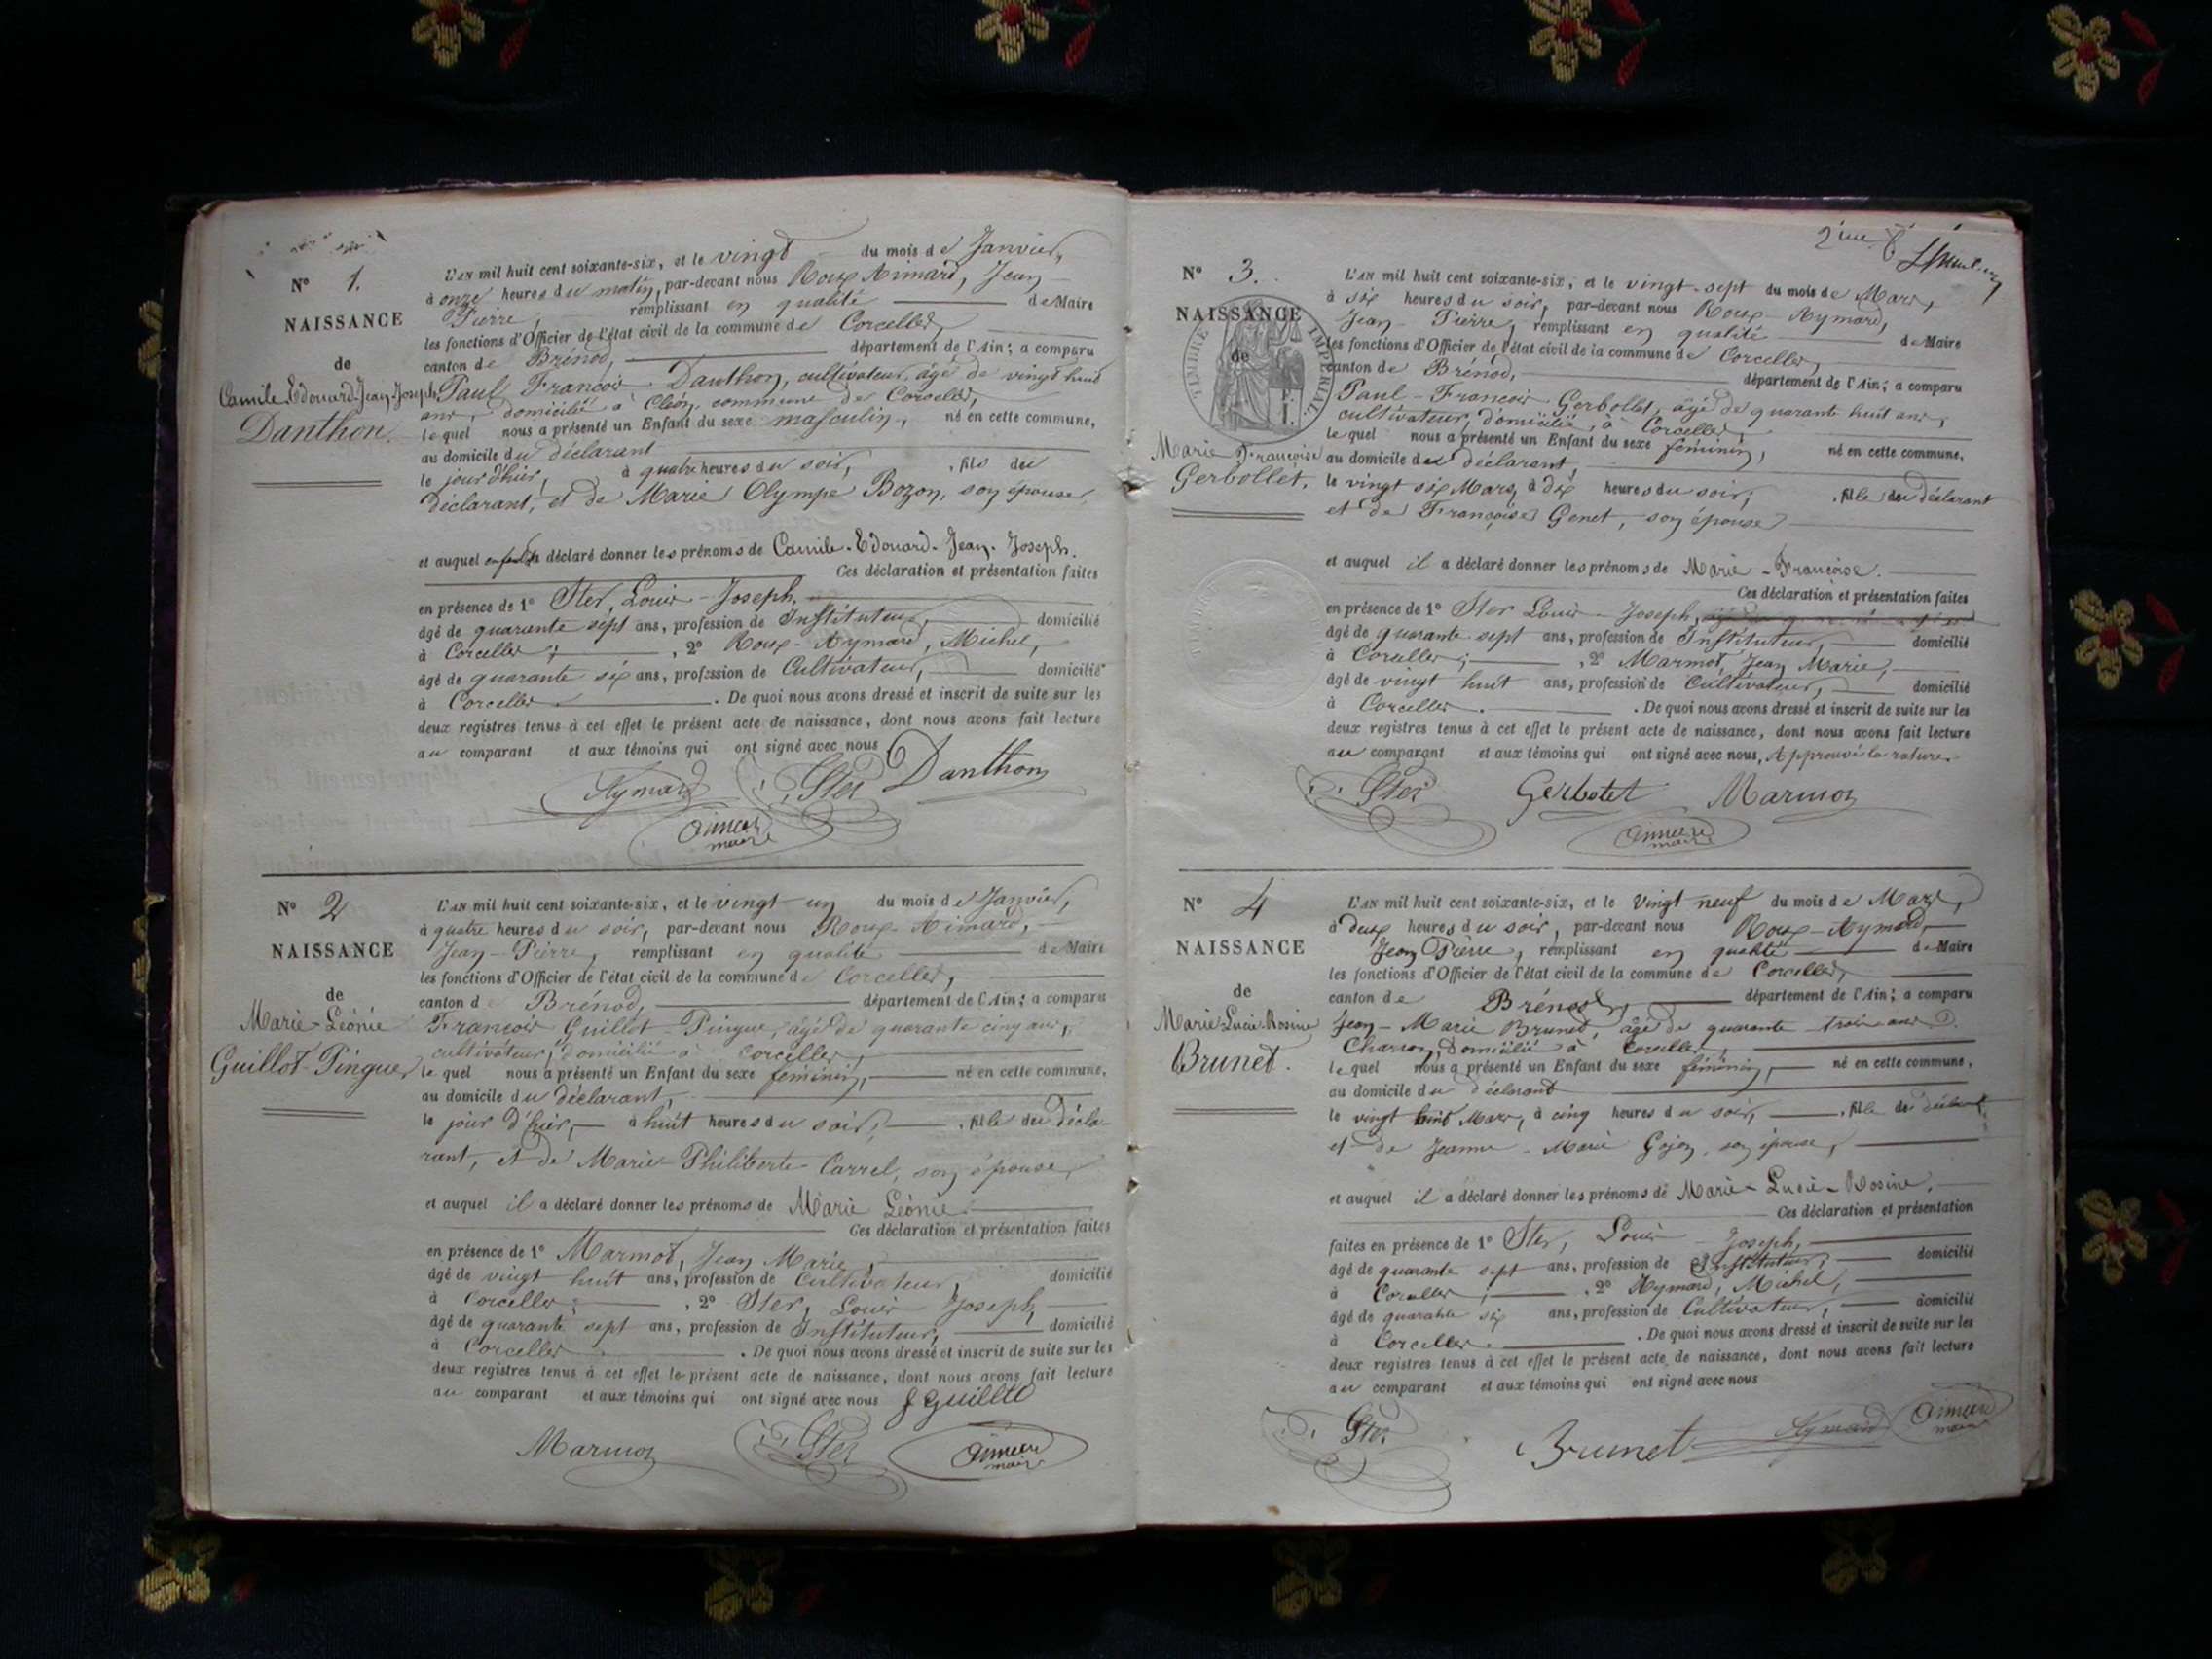 N° 1.
NAISSANCE
de
Camile-Edouard-Jean-Joseph
Danthon.
L'AN mil huit cent soixante-six, et le vingt du mois de Janvier,
à onze heures du matin, par-devant nous Roux Aimard, Jean
Pierre, remplissant en qualité de Maire
les fonctions d'Officier de l'état civil de la commune de Corcelles,
canton de Brénod, département de l'Ain; a comparu
Paul François Danthon, cultivateur, âgé de vingt huit
ans, domicilié à Cléon, commune de Corcelles,
lequel nous a présenté un Enfant du sexe masculin, né en cette commune,
au domicile du déclarant
le jour d'hier, à quatre heures du soir, fils du
déclarant, et de Marie Olympe Bozon, son épouse,
et auquel enfant a déclaré donner les prénoms de Camile-Edouard-Jean-Joseph.
Ces déclaration et présentation faites
en présence de 1° Ster, Louis-Joseph,
âgé de quarante sept ans, profession de Instituteur, domicilié
à Corcelles; , 2° Roux-Aymard, Michel,
âgé de quarante six ans, profession de Cultivateur, domicilié
à Corcelles . De quoi nous avons dressé et inscrit de suite sur les
deux registres tenus à cet effet le présent acte de naissance, dont nous avons fait lecture
au comparant et aux témoins qui ont signé avec nous
Aymard Ster Danthon
maire
N° 2
NAISSANCE
de
Marie-Léonie
Guillot-Pingue
L'AN mil huit cent soixante-six, et le vingt un du mois de Janvier,
à quatre heures du soir, par-devant nous Roux-Aimard,
Jean-Pierre, remplissant en qualité de Maire
les fonctions d'Officier de l'état civil de la commune de Corcelles,
canton de Brénod, département de l'Ain; a comparu
François Guillot-Pingue, âgé de quarante cinq ans,
cultivateur, domicilié à Corcelles,
lequel nous a présenté un Enfant du sexe féminin, né en cette commune,
au domicile du déclarant,
le jour d'hier, à huit heures du soir, fille du décla-
rant, et de Marie-Philiberte Carrel, son épouse,
et auquel il a déclaré donner les prénoms de Marie Léonie.
Ces déclaration et présentation faites
en présence de 1° Marmot, Jean Marie,
âgé de vingt huit ans, profession de Cultivateur, domicilié
à Corcelles; , 2° Ster, Louis Joseph,
âgé de quarante sept ans, profession de Instituteur, domicilié
à Corcelles . De quoi nous avons dressé et inscrit de suite sur les
deux registres tenus à cet effet le présent acte de naissance, dont nous avons fait lecture
au comparant et aux témoins qui ont signé avec nous
Ster
maire
2me
N° 3.
NAISSANCE
de
TIMBRE IMPERIAL
Marie Françoise
Gerbollet.
L'AN mil huit cent soixante-six, et le vingt-sept du mois de Mars,
à six heures du soir, par-devant nous Roux-Aymard,
Jean-Pierre, remplissant en qualité de Maire
les fonctions d'Officier de l'état civil de la commune de Corcelles,
canton de Brénod, département de l'Ain; a comparu
Paul-François Gerbollet, âgé de quarante huit ans,
cultivateur, domicilié, à Corcelles,
lequel nous a présenté un Enfant du sexe féminin, né en cette commune,
au domicile du déclarant,
le vingt six Mars, à dix heures du soir, fille du déclarant
et de Françoise Genet, son épouse
et auquel il a déclaré donner les prénoms de Marie-Françoise.
Ces déclaration et présentation faites
en présence de 1° Ster Louis-Joseph,
âgé de quarante sept ans, profession de Instituteur, domicilié
à Corcelles; , 2° Marmot, Jean Marie,
âgé de vingt huit ans, profession de Cultivateur, domicilié
à Corcelles . De quoi nous avons dressé et inscrit de suite sur les
deux registres tenus à cet effet le présent acte de naissance, dont nous avons fait lecture
au comparant et aux témoins qui ont signé avec nous, Approuvé la rature
Ster Gerbolet
maire
N° 4
NAISSANCE
de
Marie-Lucie-Rosine
Brunet.
L'AN mil huit cent soixante-six, et le Vingt neuf du mois de Mars,
à deux heures du soir, par-devant nous Roux-Aymard,
Jean Pierre, remplissant en qualité de Maire
les fonctions d'Officier de l'état civil de la commune de Corcelles,
canton de Brénod, département de l'Ain; a comparu
Jean-Marie Brunet, âgé de quarante trois ans
Charron, domicilié à Corcelles,
lequel nous a présenté un Enfant du sexe féminin, né en cette commune,
au domicile du déclarant
le vingt huit Mars, à cinq heures du soir, fille du déclarant
et de Jeanne-Marie Gojon, son épouse,
et auquel il a déclaré donner les prénoms de Marie-Lucie-Rosine.
Ces déclaration et présentation
faites en présence de 1° Ster, Louis-Joseph,
âgé de quarante sept ans, profession de Instituteur, domicilié
à Corcelles; , 2° Aymard, Michel,
âgé de quarante six ans, profession de Cultivateur, domicilié
à Corcelles . De quoi nous avons dressé et inscrit de suite sur les
deux registres tenus à cet effet le présent acte de naissance, dont nous avons fait lecture
au comparant et aux témoins qui ont signé avec nous
Ster Brunet Aymard